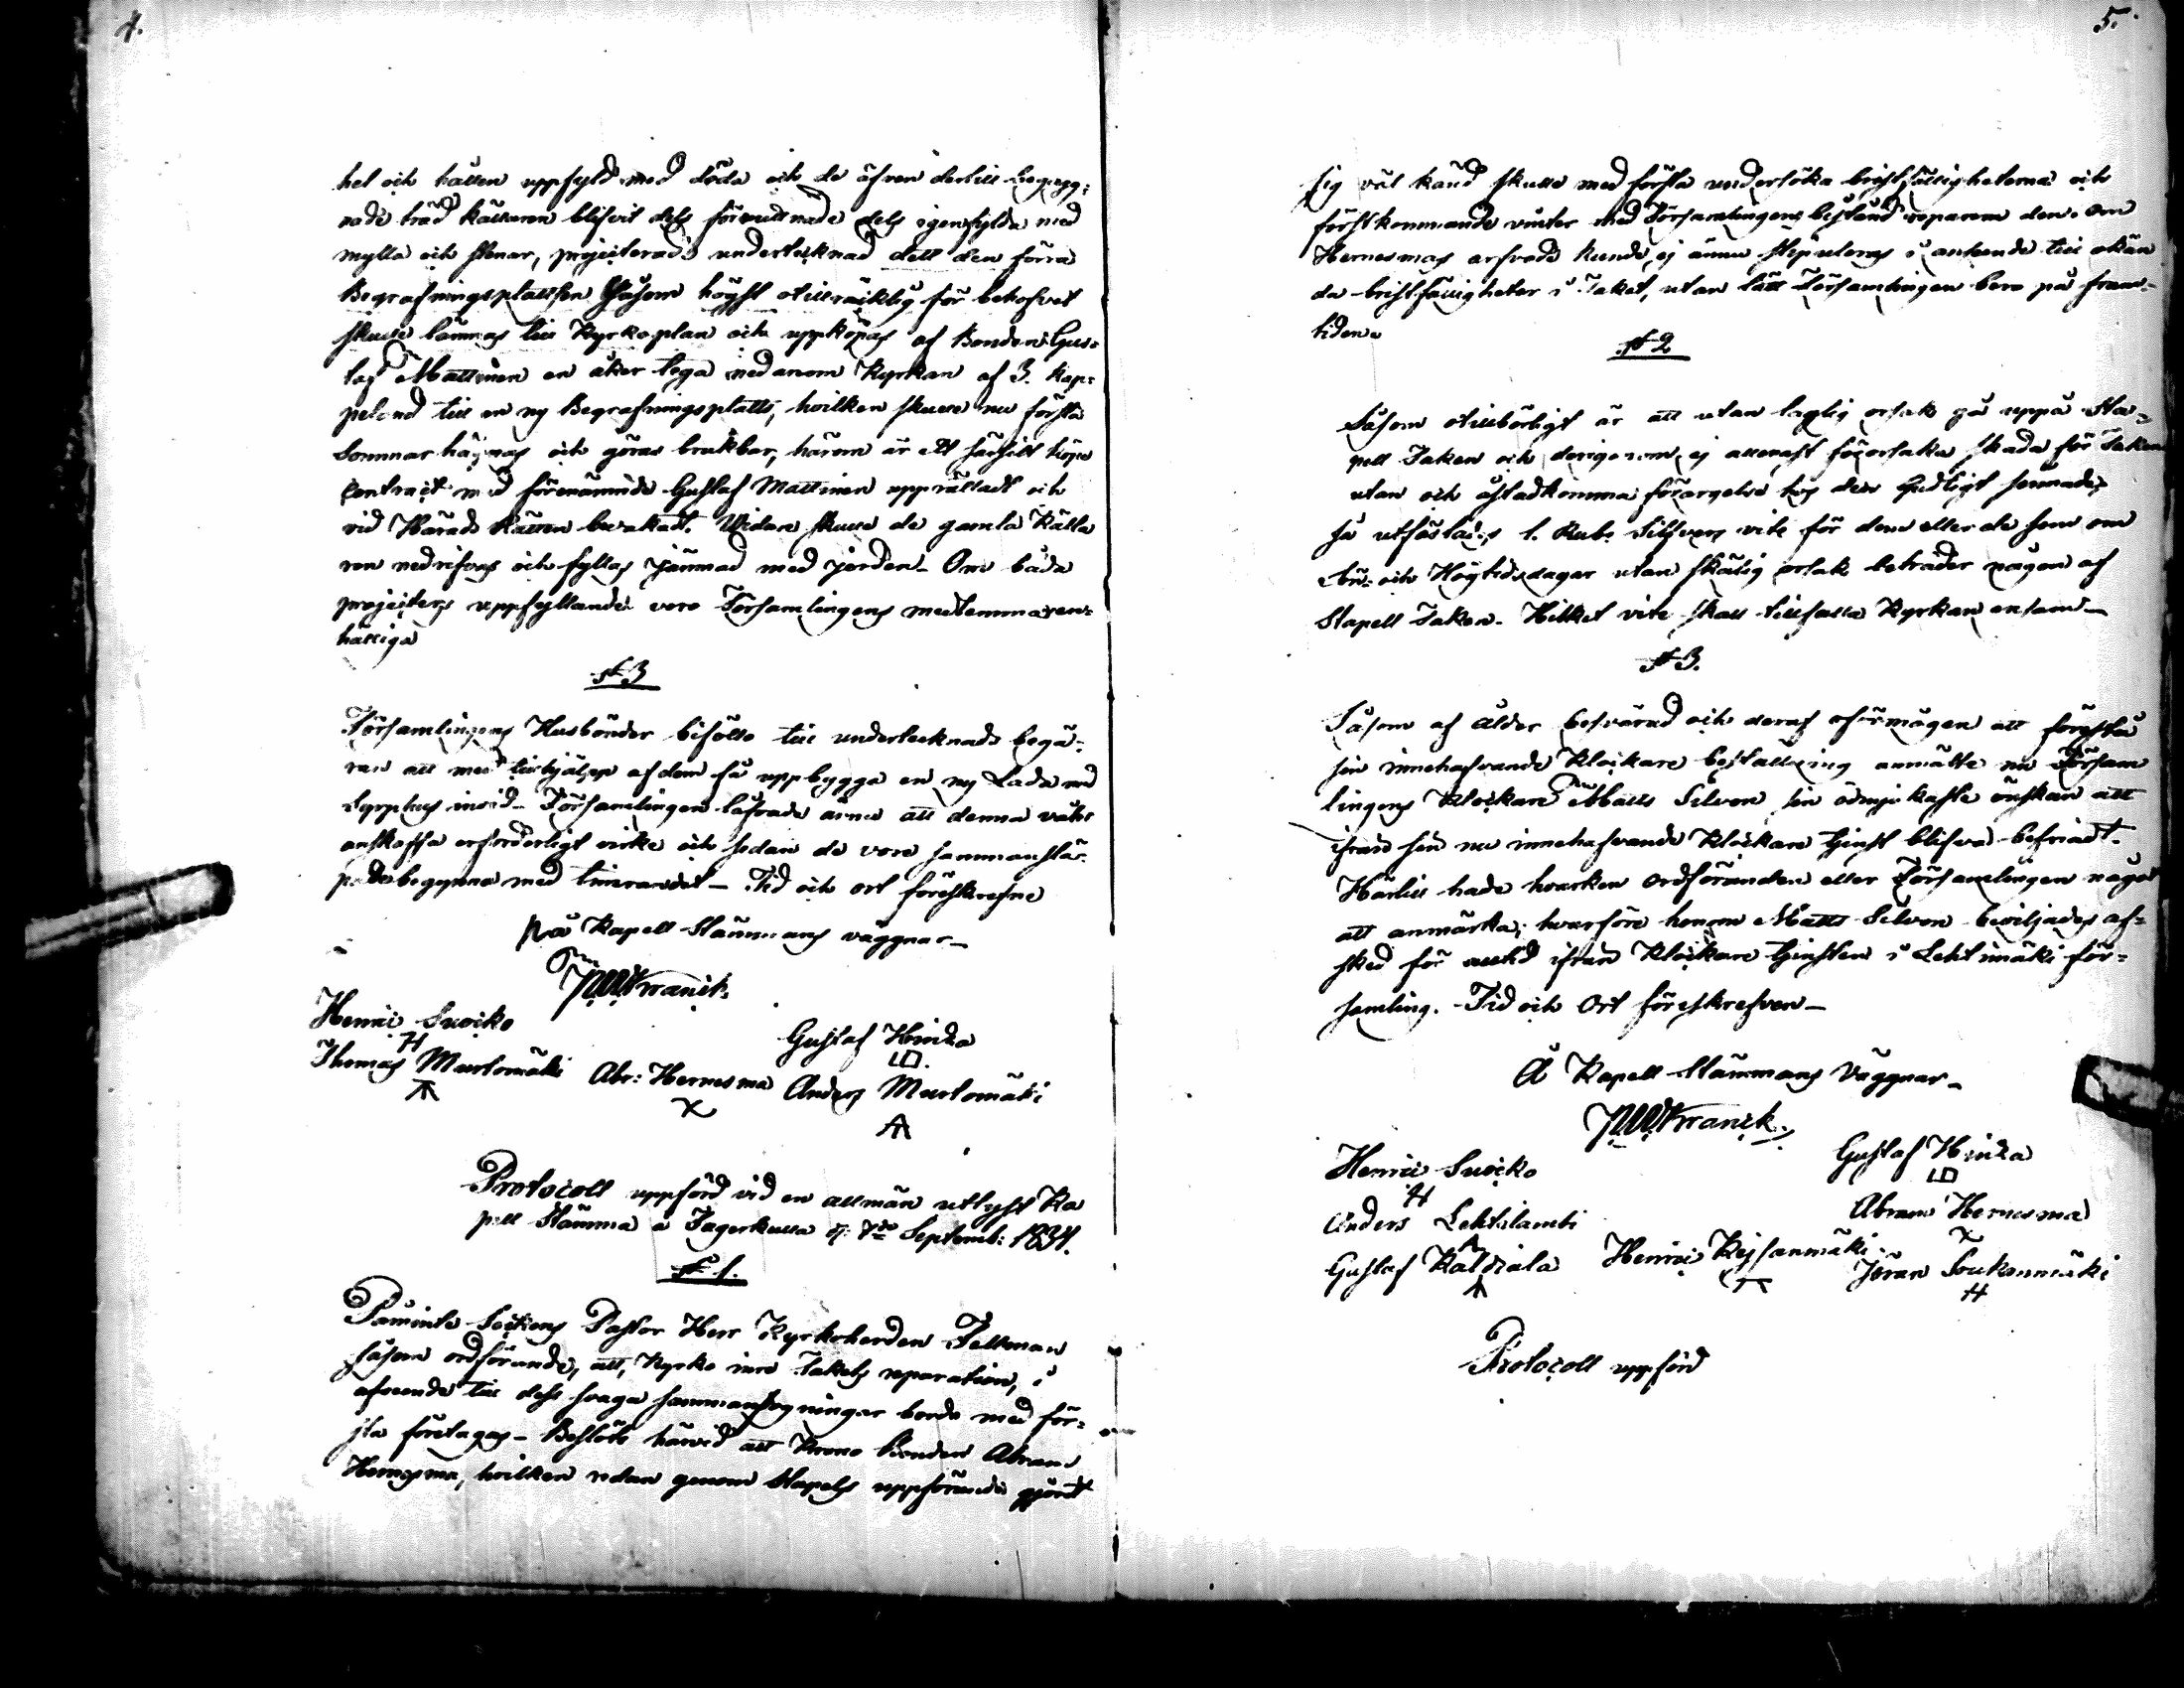 4.
hel och hållen uppfyld med döda och de äfven dertill begagg-
nade träd källaren blifvit dels förruttnade dels igenfylda med
mylla och stenar, projecterade undertecknad dett den förra
Begrafningsplattsen såsom högst otillräcklig för behofvet
skulle lämnas till Kyrkoplan och uppköpas af Bonden Gus-
taf Mattinen en åker tega nedanom Kyrkan af 3. Kap-
peland till en ny Begrafningsplatts, hvilken skulle nu första
Sommar hägnas och göras brukbar, härom är ett särskilt köpe
Contract med förenämnde Gustaf Mattinen upprättadt och
vid Härads Rätten bevakadt. Widare skulle de gamla källa
ren nedrifvas och fyllas jämnad med jorden. Om båda
projecters uppfyllande voro Församlingens medlemmar en-
hälliga
§ 3
Församlingens Husbönder biföllo till undertecknads begä-
ran att med tillhjälp af dem få uppbygga en ny Lada med
invid. Församlingen låfvade ännu att denna
anskaffa erforderligt virke och sedan de voro sammanslä-
pade begynna med timrandet. Tid och ort förestrefne
På Kapell-Stämmans väggnar
J. W. Wranick
Henric Swiko
H
Gustaf Honka
Thomas Murtomäki
Abr: Hernesma
X
Anders Murtomäki
Protocoll uppförd vid en allmän utlyst Ka
pell Stämma å Jagerkulla d: 7de Septemb: 1834.
§ 1.
Påminte Sockens Pastor Herr Kyrkoherden Fellman
såsom ordförande, att, Kyrko inre Takets reparation, i
afseende till dess svaga sammanfogningar borde med för-
sta företagas. Beslöts härvid att Krono Bonden Abram
Hernesma, hvilken redan genom Stapels uppförande gjordt
5.
sig väl känd skulle med första undersöka bristfälligheterna och
förstkommande vinter med Församlingens bistånd reparera den. Om
Hernesmas arfvode kunde ej ännu stipuleras i anseende till okän
da bristfälligheter i Taket, utan lätt Församlingen bero på fram-
tiden.
§ 2
Såsom otillbörligt är att utan laglig orsak gå uppå Sta-
pell Taken och derigenom ej allenast förorsaka skada för Taken
utan och åstadkomma förargelse hos den Gudligt sinnade,
så utfästades 1. Rub. Silfvers vite för den eller de som om
Sön- och Högtidsdagar utan skälig orsak beträder någon af
Stapell Taken. Hilket vite skall tillfalla Kyrkan ensamt
§ 3.
Såsom af ålder besvärad och deraf oförmögen att förestå
sin innehafvande Klockare beställning anmälte nu Försam
lingens Klockare Matts Silvon sin ödmjukaste önskan att
ifrån sin nu innehafvande Klockare tjenst blifva befriadt.
Härtill hade hvarken Ordföranden eller Församlingen något
att anmärka; hvarföre honom Matts Silvon beviljades af-
sked för alltid ifrån Klockare tjensten i Lehtimäki för-
samling. Tid och Ort föreskrefven
Å Kapell-Stämmans Väggnar
J. W. Wranick
Henric Swiko
H
Gustaf Honka
Anders Lehtilambi
Abram Hernesma
X
Gustaf Kaldiala
Henric Reisanmäki
Jöran Soukanmäki
H
Protocoll uppförd